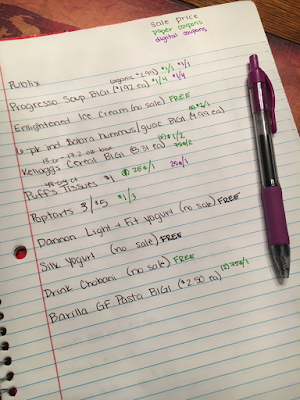 sale price
paper coupons
digital coupons
Publix
(organic $2.99) $1/1 $1/1
Progresso Soup B1G1 ($1.92 ea) $1/4 $1/4
Enlightened Ice Cream (no sale) FREE
4 pk ind Sabra hummus/guac B1G1 (4.99 ea)
Kelloggs Cereal B1G1 ($ 31 ea)
Puffs Tissues $1 25¢/1 25¢/1
Poptarts 3/$5 $1/3
Dannon Light + Fit yogurt (no sale) FREE
Silk Yogurt (no sale) FREE
Drink Chobani (no sale) FREE
Barilla GF Pasta B1G1 ($2.50 ea) (2) 75¢/1